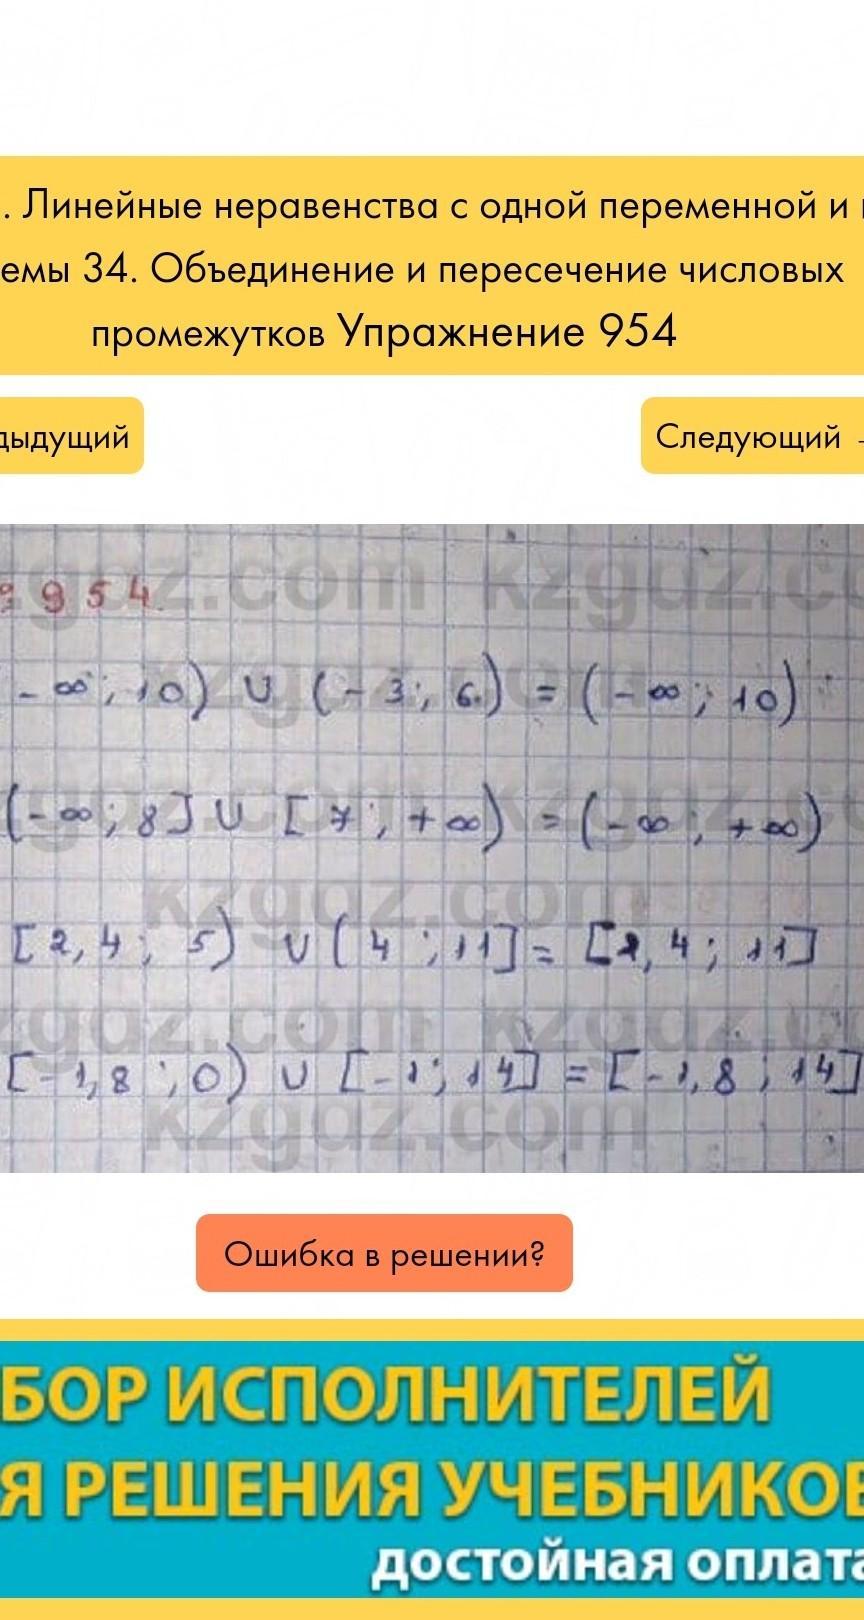 . Линейные неравенства с одной переменной и
емы 34. Объединение и пересечение числовых
промежутков Упражнение 954
дыдущий
Следующий →
954.
-∞; 10) ∪ (-3; 6) = (-∞; 10)
(-∞; 8] ∪ [7; +∞) = (-∞; +∞)
[2,4; 5) ∪ (4; 11] = [2,4; 11]
[-1,8; 0) ∪ [-1; 14] = [-1,8; 14]
kzgdz.com
Ошибка в решении?
БОР ИСПОЛНИТЕЛЕЙ
Я РЕШЕНИЯ УЧЕБНИКОВ
достойная оплата